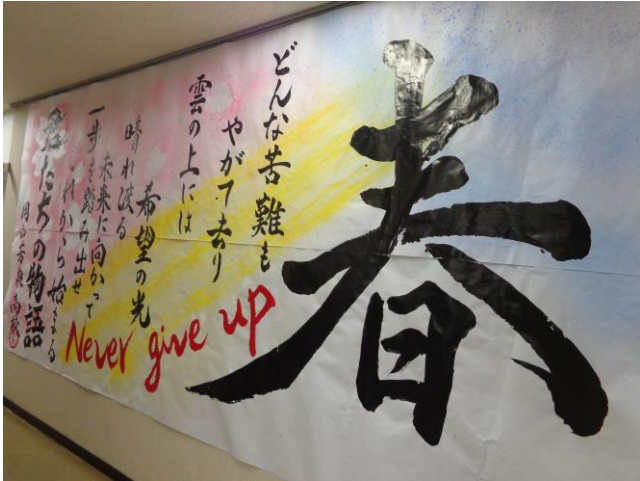 春
どんな苦難も
やがて去り
雲の上には
希望の光
晴れ渡る
未来に向かって
一歩を踏み出せ
これから始まる
たちの物語
岡山芳泉高校
Never give up